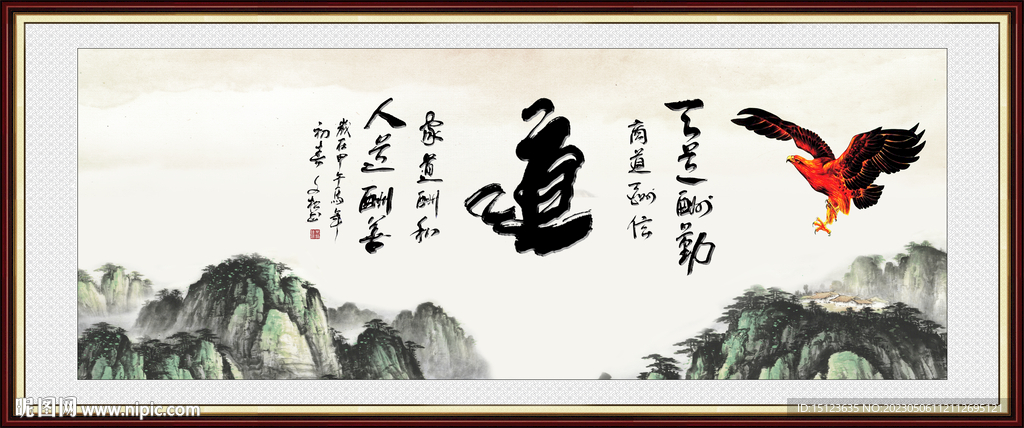 天道酬勤
商道酬信
道
家道酬和
人道酬善
岁在甲午马年
初春文松书
昵图网 www.nipic.com
ID:15123635 NO:20230506112112695121